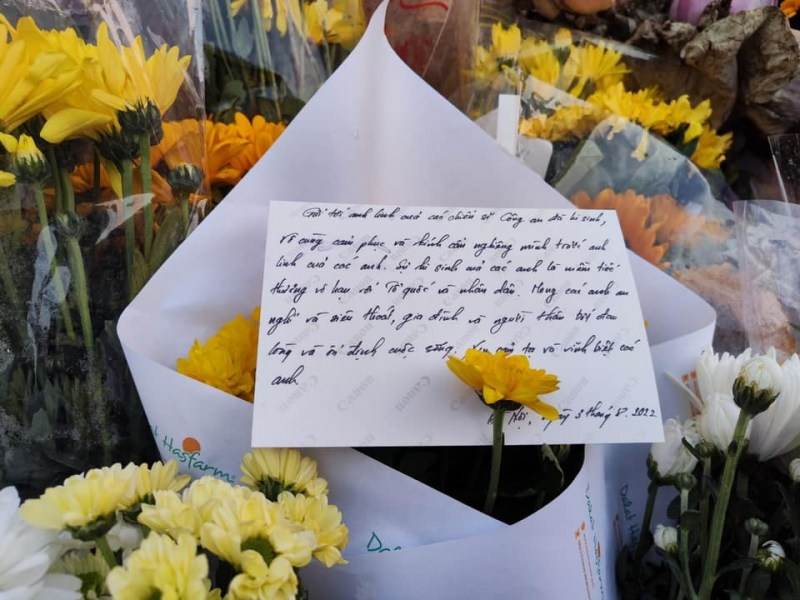 Gửi tới anh linh của các chiến sĩ Công an đã hi sinh,
Vô cùng cảm phục và kính cẩn nghiêng mình trước anh
linh của các anh. Sự hi sinh của các anh là niềm tiếc
thương vô hạn với Tổ quốc và nhân dân. Mong các anh an
nghỉ và siêu thoát, gia đình và người thân bớt đau
lòng và ổn định cuộc sống. Xin và vĩnh biệt các
anh.
Hà Nội, ngày 3 tháng 8. 2022
Canon
Hasfarm
Dalat Hasfarm